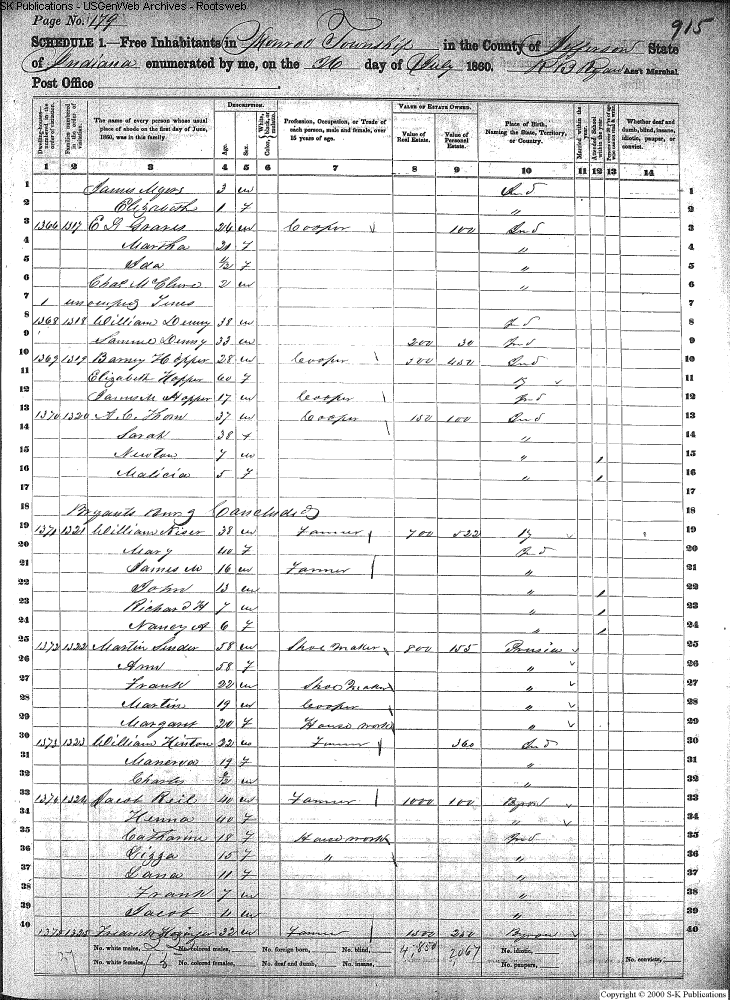 SK Publications - USGenWeb Archives - Rootsweb
Page No. 179
915
SCHEDULE 1.—Free Inhabitants in Monroe Township in the County of Jefferson State
of Indiana enumerated by me, on the 26 day of July 1860. R B Ryan Ass't Marshal
Post Office
Dwelling-houses—numbered in the order of visitation.
Families numbered in the order of visitation.
The name of every person whose usual place of abode on the first day of June, 1860, was in this family.
DESCRIPTION.
Age.
Sex.
Color, White, black, or mulatto.
Profession, Occupation, or Trade of each person, male and female, over 15 years of age.
VALUE OF ESTATE OWNED.
Value of Real Estate.
Value of Personal Estate.
Place of Birth, Naming the State, Territory, or Country.
Married within the year.
Attended School within the year.
Whether deaf and dumb, blind, insane, idiotic, pauper, or convict.
1 2 3 4 5 6 7 8 9 10 11 12 13 14
1 James Myers 3 m Ind 1
2 Elizabeth 1 f " 2
3 1366 1317 E G Graves 26 m Cooper 100 Ind 3
4 Martha 21 f " 4
5 Ida f " 5
6 Chas McClure 2 m " 6
7 1 unoccupied 7
8 1368 1318 William Denny 38 m Ind 8
9 Samuel Denny 33 m 200 30 Ind 9
10 1369 1319 Barney Hopper 28 m Cooper 300 450 Ind 10
11 Elizabeth Hopper 60 f Ky 11
12 James M Hopper 17 m Cooper Ind 12
13 1370 1320 A. C. Thom 37 m Cooper 150 100 Ind 13
14 Sarah 38 f " 14
15 Newton 7 m " 1 15
16 Malicia 5 f " 1 16
17 17
18 Bryants Concluded 18
19 1371 1321 William Kiser 38 m Farmer 700 522 Ky 19
20 Mary 40 f Ind 20
21 James M 16 m Farmer " 21
22 John 13 m " 1 22
23 Richard H 7 m " 1 23
24 Nancy A 6 f " 1 24
25 1372 1322 Martin Linder 58 m Shoe maker 800 155 Prusia 25
26 Ann 58 f " 26
27 Frank 22 m Shoe Maker " 27
28 Martin 19 m Cooper " 28
29 Margaret 20 f House work " 29
30 1373 1323 William Hinton 22 m Farmer 360 Ind 30
31 Manerva 19 f " 31
32 Charles m 32
33 1374 1324 Jacob Reil 40 m Farmer 1000 100 Byron 33
34 Henna 40 f " 34
35 Catharine 18 f House work Ind 35
36 Lizza 15 f " " 36
37 Lana 11 f " 37
38 Frank 7 m " 38
39 Jacob m " 39
40 1375 1325 32 m Farmer 1500 250 Byron 40
No. white males, No. colored males, No. foreign born, No. blind, 4,850 2067 No. idiotic,
No. white females, No. colored females, No. deaf and dumb, No. insane, No. paupers, No. convicts,
37
Copyright © 2000 S-K Publications